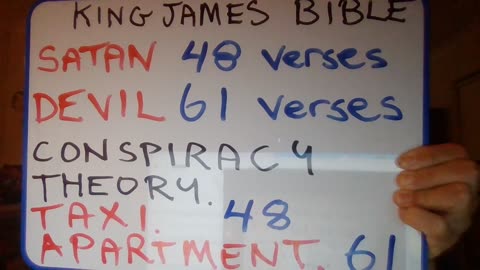 KING JAMES BIBLE
SATAN 48 verses
DEVIL 61 verses
CONSPIRACY
THEORY.
TAXI. 48
APARTMENT. 61